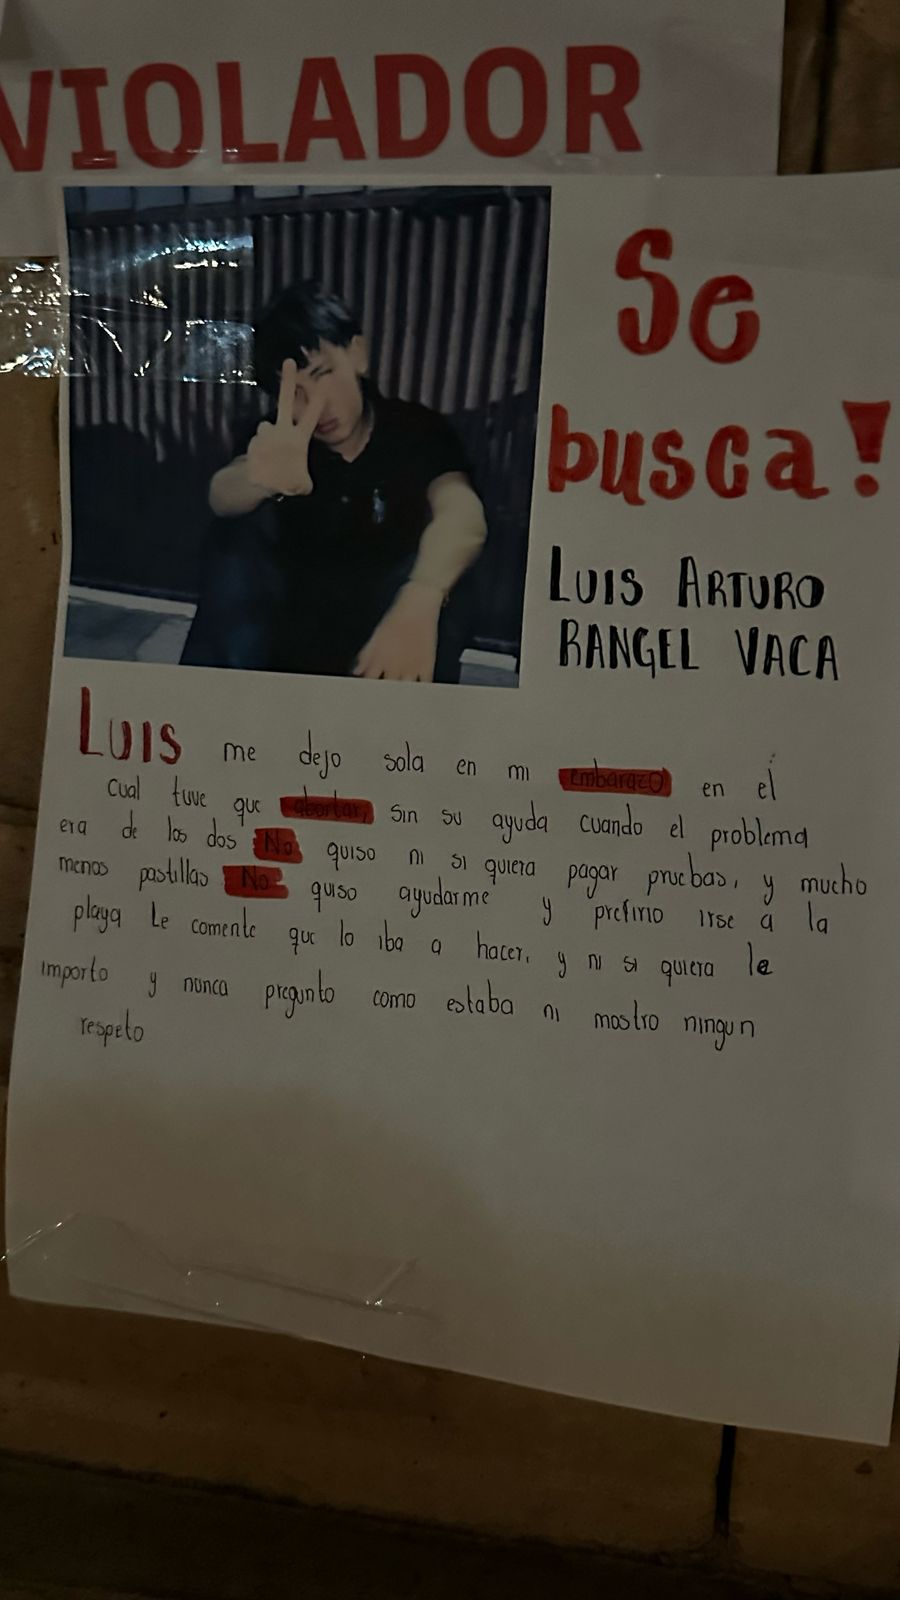 VIOLADOR
Se
busca!
LUIS ARTURO
RANGEL VACA
LUIS me dejo sola en mi embarazo en él
cual tuve que abortar, sin su ayuda cuando el problema
era de los dos No quiso ni si quiera pagar pruebas, y mucho
menos pastillas No quiso ayudarme y prefirio irse a la
playa Le comente que lo iba a hacer, y ni si quiera le
importo y nunca pregunto como estaba ni mostro ningun
respeto